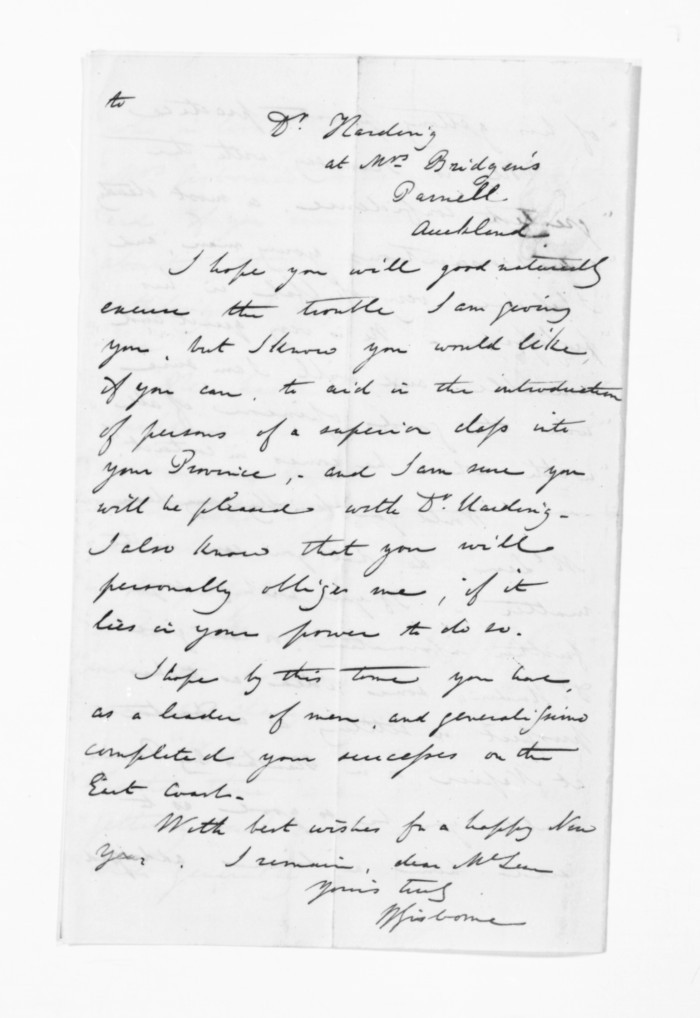 to
Dr. Harding
at Mrs Bridgen's
Parnell
Auckland.
I hope you will good naturedly
excuse the trouble I am giving
you, but I know you would like,
if you can, to aid in the introduction
of persons of a superior class into
your Province, - and I am sure you
will be pleased with Dr. Harding -
I also know that you will
personally oblige me, if it
lies in your power to do so.
I hope by this time you have,
as a leader of men, and generalissimo
completed your successes on the
East Coast -
With best wishes for a happy New
Year. I remain, dear McLean
Yours truly
WGisborne